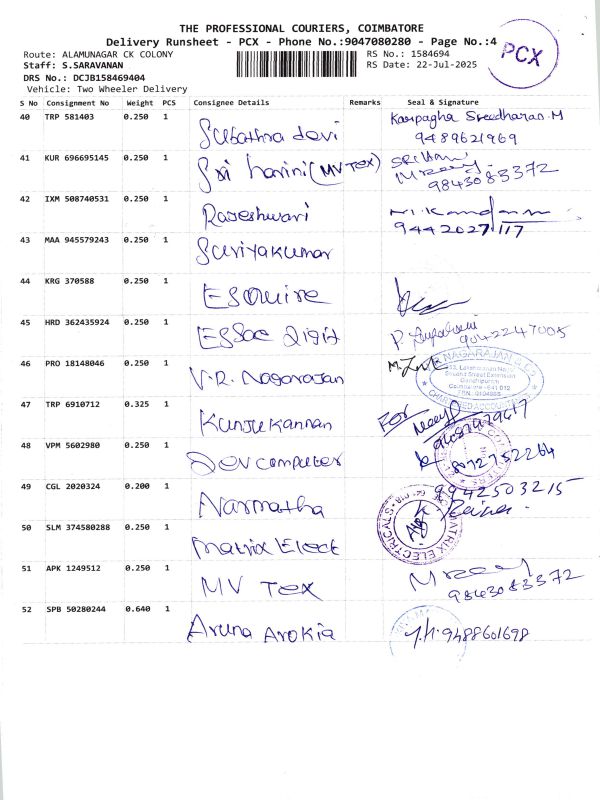 THE PROFESSIONAL COURIERS, COIMBATORE
Delivery Runsheet - PCX - Phone No.:9047080280 - Page No.:4
Route: ALAMUNAGAR CK COLONY
RS No.: 1584694
Staff: S.SARAVANAN
RS Date: 22-Jul-2025
PCX
DRS No.: DCJB158469404
Vehicle: Two Wheeler Delivery
S No Consignment No Weight PCS Consignee Details Remarks Seal & Signature
40 TRP 581403 0.250 1 Subathra devi Karpagha Sreedharan.M
9489621969
41 KUR 696695145 0.250 1 Sri harini (MV TEX)
9843083372
42 IXM 508740531 0.250 1 Rajeshwari
9442027117
43 MAA 945579243 0.250 1 Suriyakumar
44 KRG 370588 0.250 1 Esquire
45 HRD 362435924 0.250 1 Essae Digit
9042247005
46 PRO 18148046 0.250 1 V.R. Nagarajan
Second Street Extension
Gandhipuram
Coimbatore - 641 012
CHARTERED ACCOUNTANTS
47 TRP 6910712 0.325 1 Kunjukannan For
48 VPM 5602980 0.250 1 Dev computer
8072752264
49 CGL 2020324 0.200 1 Narmatha 9942503215
50 SLM 374580288 0.250 1 Matrix Elect
MATRIX ELECTRICALS
51 APK 1249512 0.250 1 MV Tex
9843083372
52 SPB 50280244 0.640 1 Aruna Arokia 9488601698